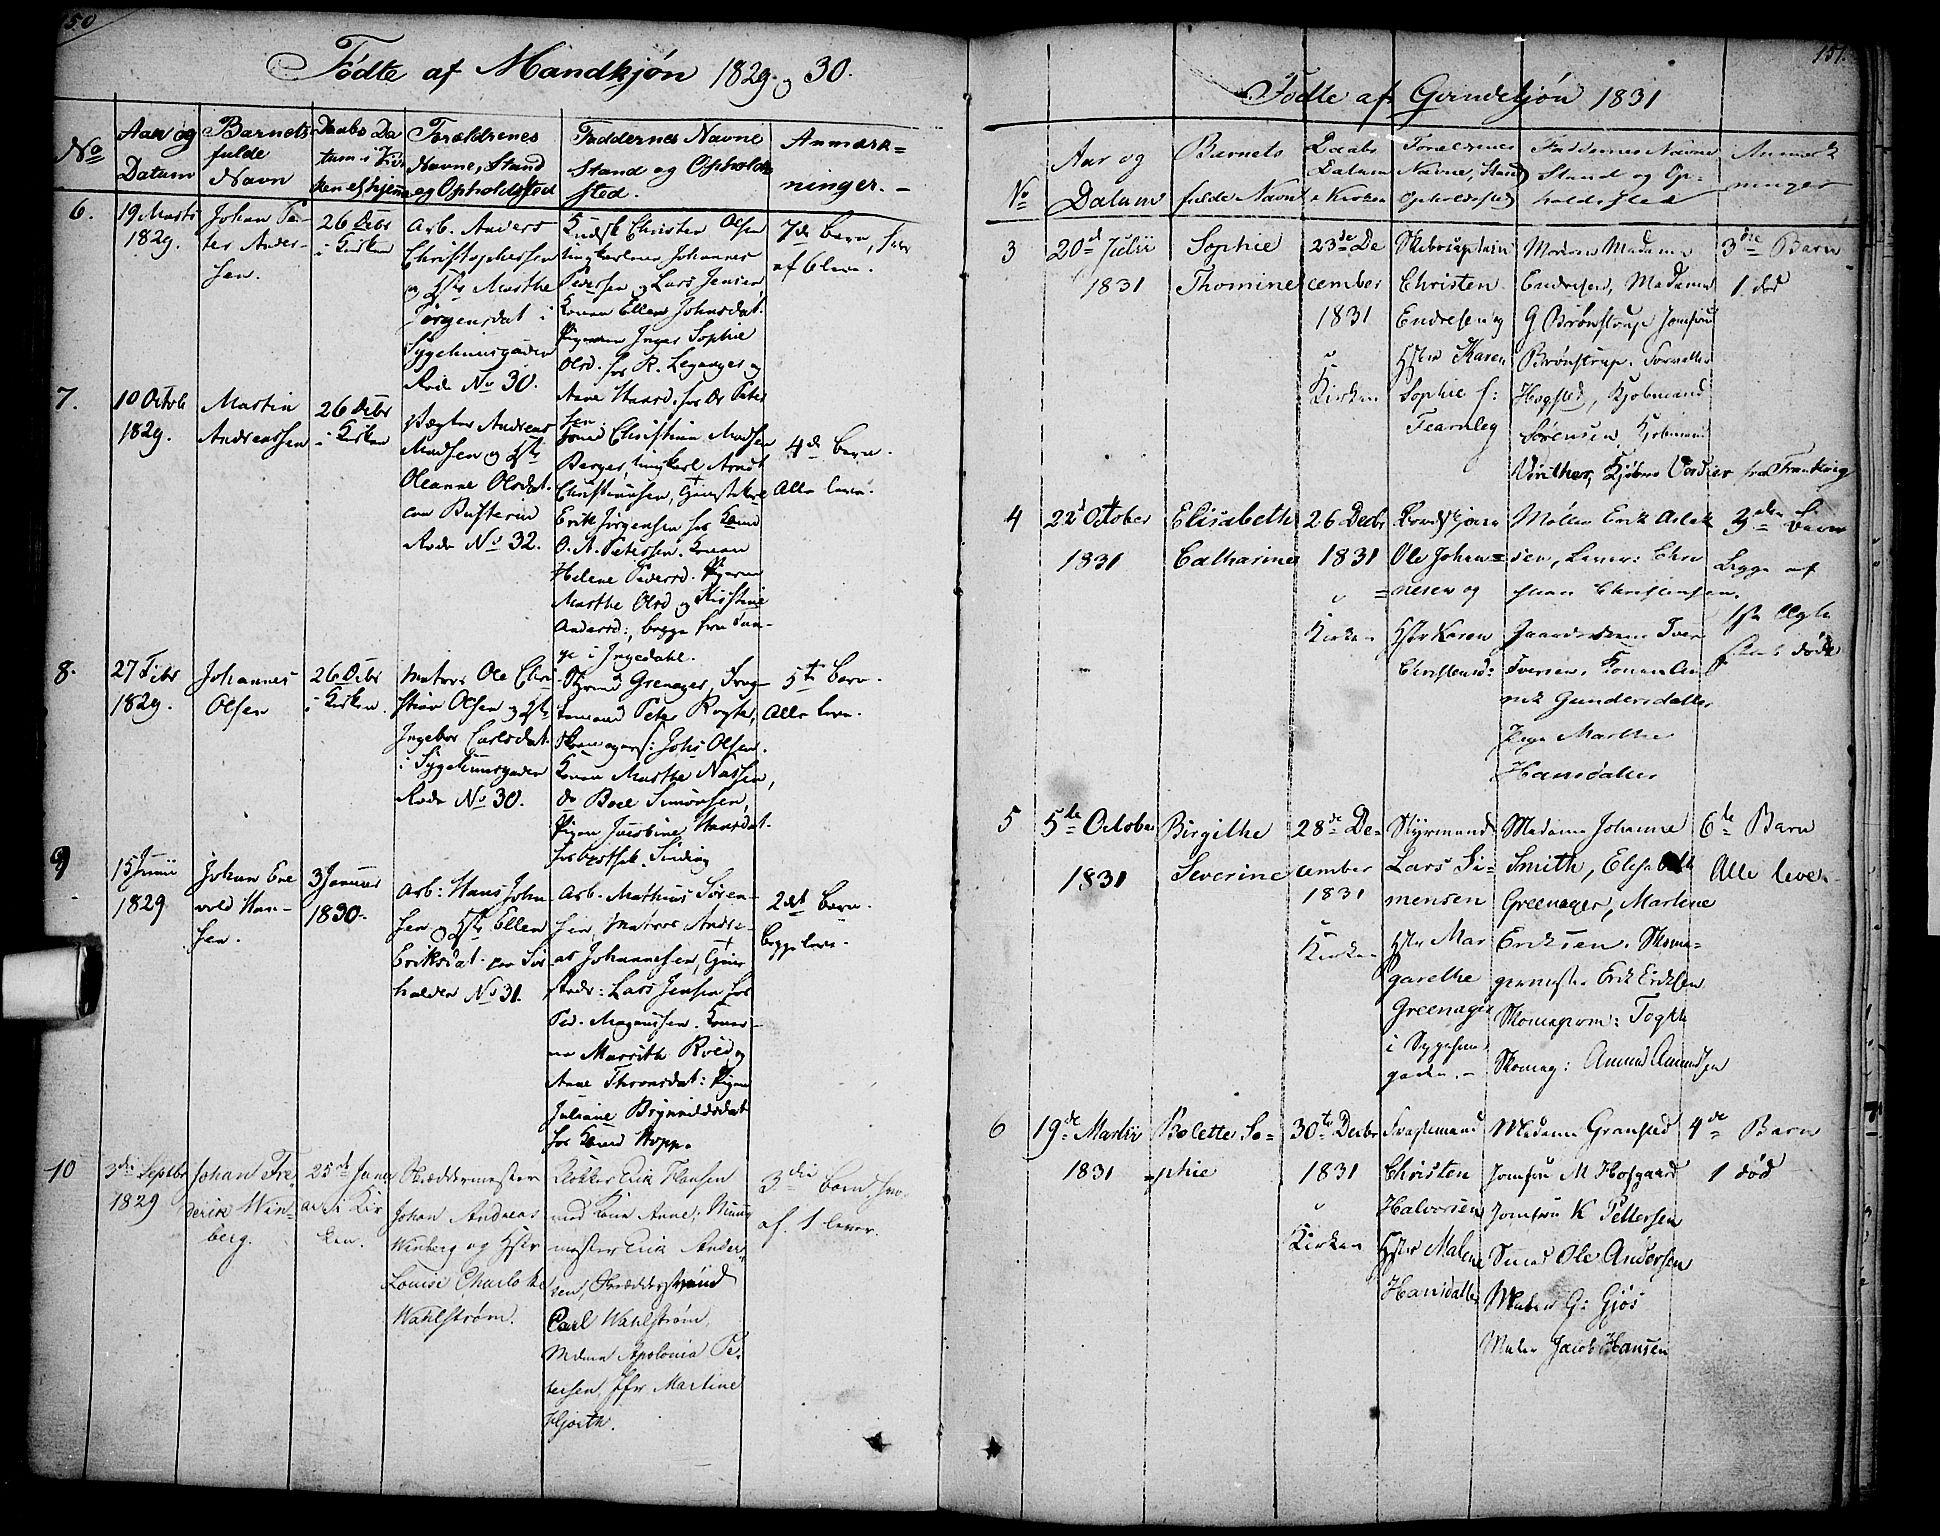 50
Fødte af Mandkjøn 1829 og 30.
No
Aar og
Datum
Barnets
fulde
Navn
Daabs Da
tum i Kir
ken el hjeme
Forældrenes
Navne, Stand
og Opholdssted
Faddernes Navne
Stand og Opholds
sted.
Anmærk=
ninger. -
6.
19 Marts
1829.
Johan Pe-
ter Ander-
sen.
26 Debr
i Kirken
Arb. Anders
Christophersen
og Hstr Marthe
Jørgensdat i
Sygehuusgaden
Rode No 30.
Kudsk Christen Olsen
Johannes
Pedersen og Lars Jensen
Konen Ellen Johnsdat.
Pigerne Inger Sophie
Olsd. hos R. Leganger og
Anne Hansd. hos Dr Peter
sen.
7de Barn,
af 6 leve.
7.
10 Octob
1829.
Martin
Andreassen
26 Debr
i Kirken
Vægter Andreas
Madsen og Hstr
Oleanne Olsdat.
paa Busterud
Rode No 32.
Christian Madsen
Berger, Arndt
Christiansen,
Erik Jørgensen hos
O. A. Petersen. Konen
Helene Pedersd. Pigerne
Marthe Olsd og Kirstine
Andersd:, begge fra Tan-
ge i Ingedahl.
4de Barn.
Alle leve.
8.
27 Febr
1829.
Johannes
Olsen
26 Debr
i Kirken.
Matros Ole Chri
stian Olsen og Hstr
Ingebor Carlsdat.
i Sygehuusgaden
Rode No 30.
Styrmd Grenager, Frag-
temand Peter
Skomagers: Johs Olsen.
Konen Marthe Nassen,
do Boel Simonsen,
Pigen Jacobine Hansdat.
hos
5te Barn.
Alle leve.
9
15 Junii
1829
Johan Ene
vold Han-
sen.
3 Januar
1830.
Arb: Hans John
sen og Hstr Ellen
Eriksdat paa Sør
halden No 31.
Arb. Mathias Søren-
sen, Matros Andre-
as Johannesen,
Lars Jensen hos
Ped. Magnussen. Koner-
ne Marrith Roed og
Anne Thronsdat: Pigen
Juliane Brynnildsdat
hos Kbmd Hopp.
2det Barn.
begge leve.
10
3die Septbr
1829
Johan Fre
derik Win-
berg.
25de Janu
ar i Kir
ken.
Skræddermester
Johan Andreas
Winberg og Hstr
Louise Charlotte
Wahlstrøm.
Klokker Erik Hansen
med Kone Anne, Muur
mester Erik Ander
sen, Skræddersvend
Carl Wahlstrøm,
Mdma Apolonia Pe-
tersen, Jfr Martine
Hjorth.
3die Barn,
af 1 lever.
151.
Fødte af Qvindekjøn 1831
No
Aar og
Datum
Barnets
fulde Navn
Daabs
Datum
i Kirken
Forældrenes
Navne, Stand
Opholdssted
Faddernes Navne
Stand og Op-
holdssted
Anmærk
ninger
3
20de Julii
1831
Sophie
Thomine
23de De
cember
1831
i
Kirken
Skibscaptain
Christen
Endresen og
Hstr Karen
Sophie f:
Fearnley
Moderen Madame
Endresen, Madame
G Brønstrup Jomfru
Brønstrup.
Høgsted, Kjøbmand
Sørensen, Kjøbmand
Winther, Kjøbm
3die Barn
1. død
4
22d October
1831
Elisabeth
Catharine
26 Decbr
1831
i
Kirken
Ole Johan=
=nesen og
Hstr Karen
Christensd:
Møller Erik Aslak
sen, Chri
stian Christensen,
Iver
Iversen, Konen An
ne Gundersdatter
Pige Marthe
Hansdatter
3die Barn
5
5te October
1831
Birgithe
Severine
28de De-
cember
1831
i
Kirken
Styrmand
Lars Si-
mensen
Hstr Mar
garethe
Greenager
i Sygehuus
gaden. -
Madame Johanne
Smith, Elise
Greenager, Martine
Eriksen. Skoma-
germester Erik Eriksen
Skomagerm:
Skomag: Amund Amundsen
6te Barn
Alle lever
6
19de Martii
1831
Bolette So=
=phie
30te Decbr
1831
i
Kirken
Fragtemand
Christen
Halvorsen
Hstr Malene
Hansdatter
Madame Gransted
Jomfru M Hofgaard
Jomfru K Pettersen
Smed Ole Andersen
Maler G: Gjøs
Maler Jacob Hansen
4de Barn
1 død